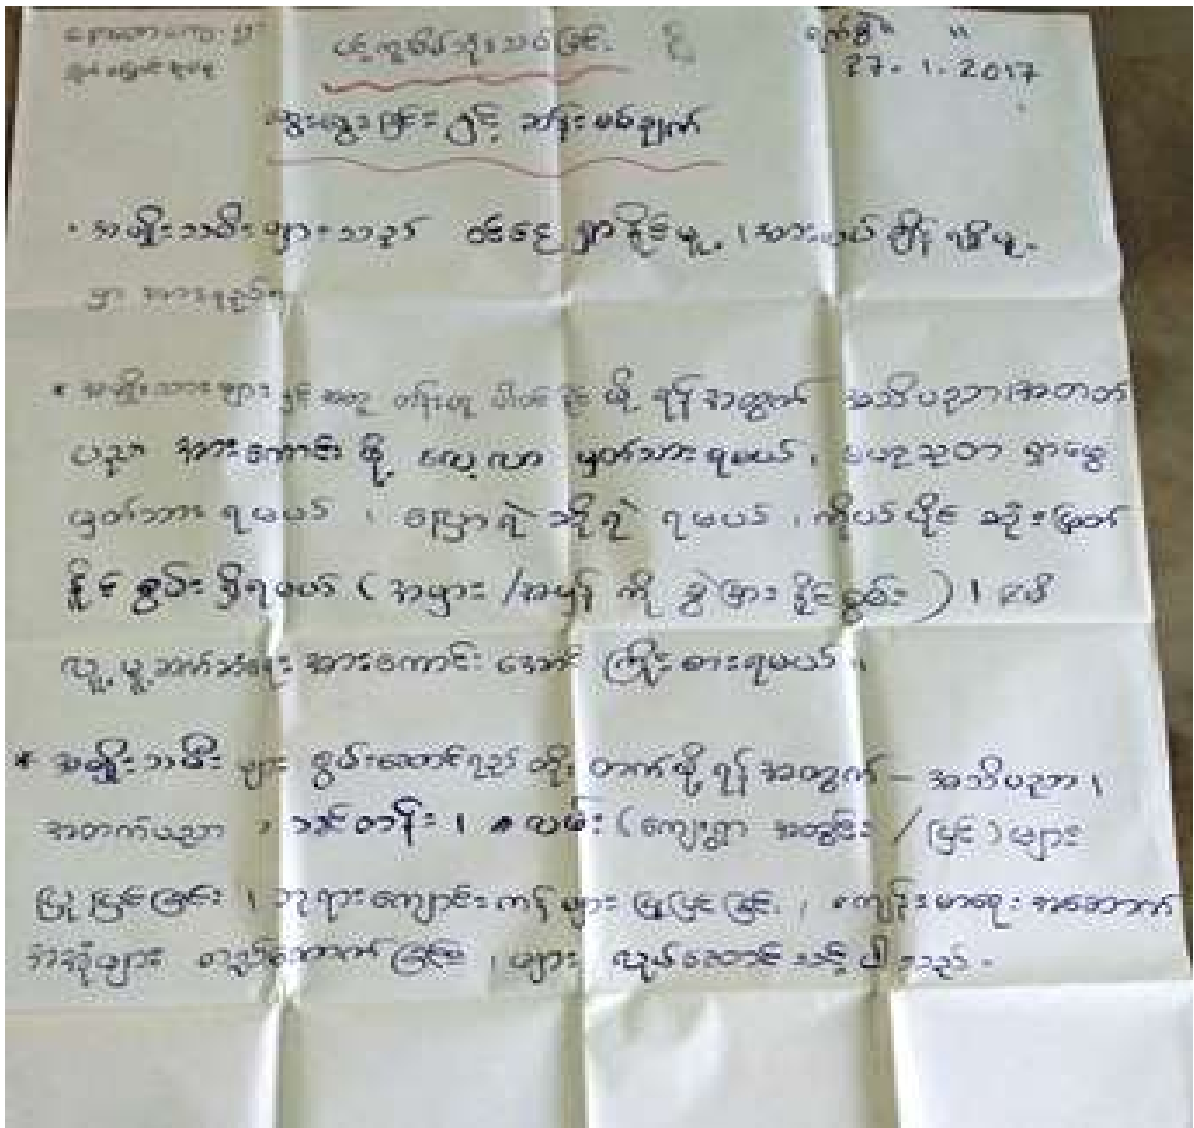 ရက်စွဲ။ ။
27. 1. 2017
ဆွေးနွေးခြင်း နှင့် ဆန်းစစ်ချက်
• အမျိုးသမီး များသည် ဝင်ငွေ ရှာနိုင်မှု၊ အားလပ်ချိန် ရရှိမှု
မှာ အားနည်း
* အမျိုးသား များနှင့် အတူ တန်းတူ ဖို့ ရန် အတွက် အသိပညာ၊ အတတ်
ပညာ အားကောင်း ဖို့ လေ့လာ မှတ်သားရမယ်၊ ဗဟုသုတ ရှာဖွေ
မှတ်သား ရမယ်၊ ပြောရဲ ဆိုရဲ ရမယ်၊ ကိုယ်ပိုင် ဆုံးဖြတ်
နိုင်စွမ်း ရှိရမယ် (အမှား / အမှန် ကို ခွဲခြား နိုင်စွမ်း)၊
လူမှု ဆက်ဆံရေး အားကောင်း အောင် ကြိုးစားရမယ်၊
* အမျိုးသမီး များ စွမ်းဆောင်ရည် တိုးတက်ဖို့ ရန် အတွက် – အသိပညာ၊
အတတ်ပညာ၊ သင်တန်း၊ လမ်း (ကျေးရွာ အတွင်း / ပြင်) များ
ပြုပြင်ခြင်း၊ ဘုရားကျောင်းကန် များ ပြုပြင်ခြင်း၊ ကျန်းမာရေး အဆောက်
အအုံများ တည်ဆောက်ခြင်း၊ များ လုပ်ဆောင် သင့်ပါသည်။